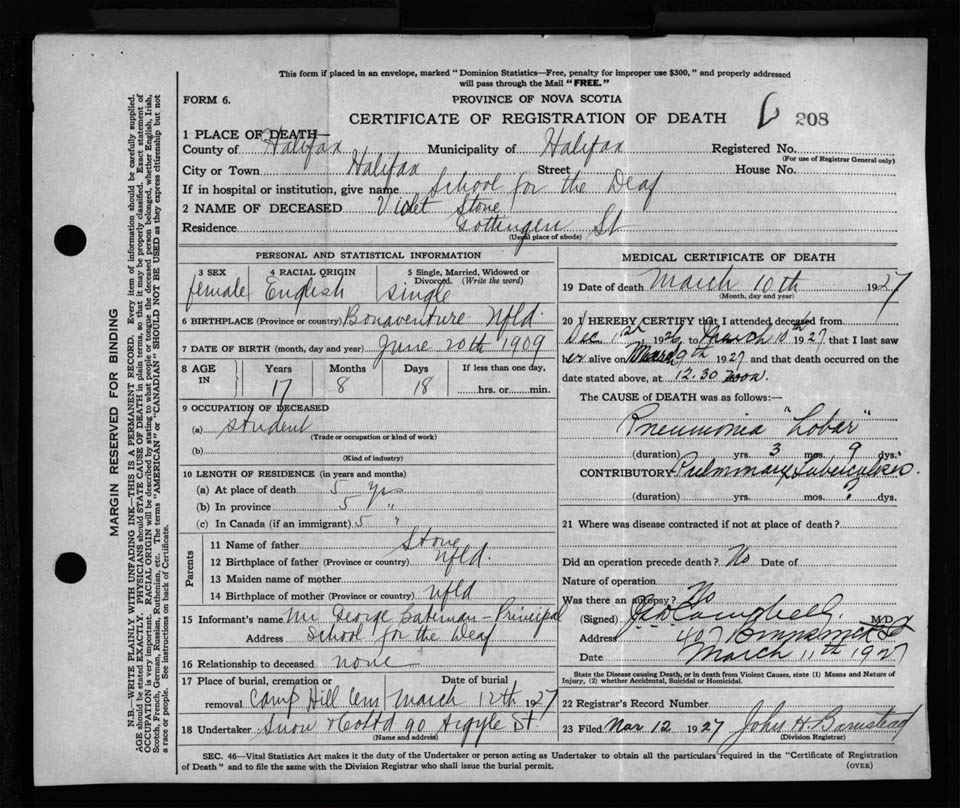 This form if placed in an envelope, marked "Dominion Statistics—Free, penalty for improper use $300," and properly addressed
will pass through the Mail "FREE."
FORM 6.
PROVINCE OF NOVA SCOTIA
CERTIFICATE OF REGISTRATION OF DEATH 208
1 PLACE OF DEATH—
County of Halifax Municipality of Halifax Registered No.
(For use of Registrar General only)
City or Town Halifax Street House No.
If in hospital or institution, give name School for the Deaf
2 NAME OF DECEASED Violet Stone
Residence Gottingen St
(Usual place of abode)
PERSONAL AND STATISTICAL INFORMATION
3 SEX 4 RACIAL ORIGIN 5 Single, Married, Widowed or
Divorced. (Write the word)
female English single
6 BIRTHPLACE (Province or country) Bonaventure Nfld.
7 DATE OF BIRTH (month, day and year) June 20th 1909
8 AGE IN Years Months Days If less than one day,
17 8 18 hrs. or min.
9 OCCUPATION OF DECEASED
(a) Student
(Trade or occupation or kind of work)
(b)
(Kind of industry)
10 LENGTH OF RESIDENCE (in years and months)
(a) At place of death 5 yrs
(b) In province 5 "
(c) In Canada (if an immigrant) 5 "
Parents
11 Name of father Stone
12 Birthplace of father (Province or country) Nfld.
13 Maiden name of mother
14 Birthplace of mother (Province or country) Nfld
15 Informant's name Mr George Bateman - Principal
Address School for the Deaf
16 Relationship to deceased none
17 Place of burial, cremation or Date of burial
removal Camp Hill Cem March 12th 1927
18 Undertaker Snow & Co Ltd 90 Argyle St
(Name and address)
MEDICAL CERTIFICATE OF DEATH
19 Date of death March 10th 1927
(Month, day and year)
20 I HEREBY CERTIFY that I attended deceased from
Dec 1st 1926 to March 10th 1927 that I last saw
her alive on March 9th 1927 and that death occurred on the
date stated above, at 12.30 noon.
The CAUSE of DEATH was as follows:—
Pneumonia "Lobar"
(duration) yrs. 3 mos. 9 dys.
CONTRIBUTORY Pulmonary Tuberculosis
(duration) yrs. mos. ? dys.
21 Where was disease contracted if not at place of death?
Did an operation precede death? No Date of
Nature of operation
Was there an autopsy? No
(Signed) Campbell M.D.
Address 407 Brunswick St
Date March 11th 1927
State the Disease causing Death, or in death from Violent Causes, state (1) Means and Nature of
Injury, (2) whether Accidental, Suicidal or Homicidal.
22 Registrar's Record Number
23 Filed Mar 12 1927 John H. Barnstead
(Division Registrar)
SEC. 46—Vital Statistics Act makes it the duty of the Undertaker or person acting as Undertaker to obtain all the particulars required in the "Certificate of Registration
of Death" and to file the same with the Division Registrar who shall issue the burial permit. (OVER)
MARGIN RESERVED FOR BINDING
N.B.—WRITE PLAINLY, WITH UNFADING INK—THIS IS A PERMANENT RECORD. Every item of information should be carefully supplied.
AGE should be stated EXACTLY. PHYSICIANS should STATE CAUSE OF DEATH in plain terms, so that it may be properly classified. Exact statement of
OCCUPATION is very important. RACIAL ORIGIN will be described by stating to what people or tongue the deceased person belonged, whether English, Irish,
Scotch, French, German, Russian, Ruthenian, etc. The terms "AMERICAN" or "CANADIAN" SHOULD NOT BE USED as they express citizenship but not
a race or people. See instructions on back of Certificate.